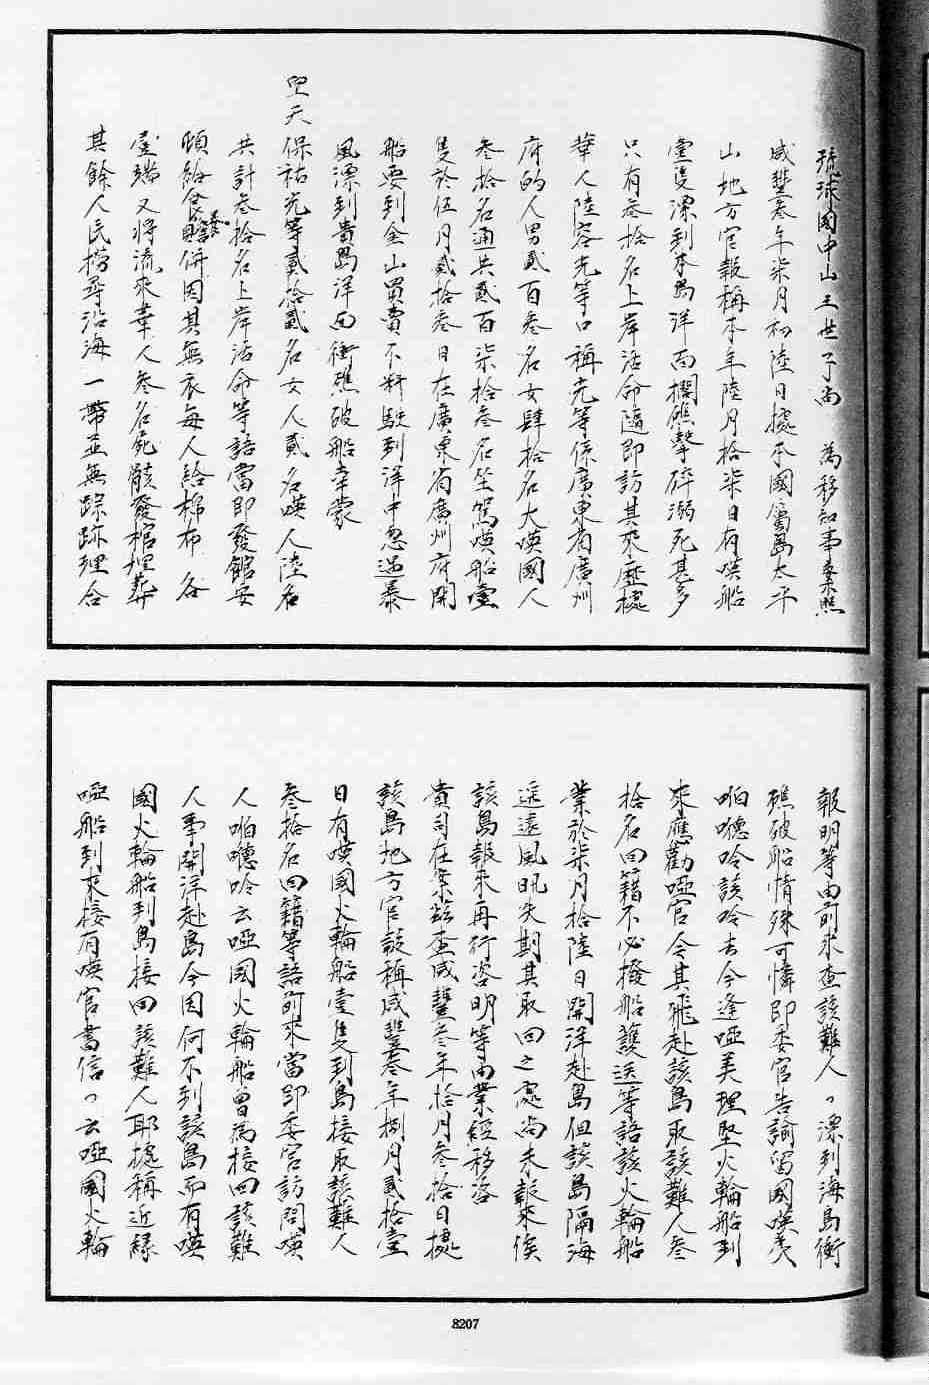 琉球國中山王世子尚　為移知事案照
咸豐叁年柒月初陸日據本國屬島太平
山地方官報稱本年陸月拾柒日有暎船
壹隻漂到本島洋面擱礁擊碎溺死甚多
只有叁拾名上岸活命隨即訪其來歷據
華人陸容光等口稱光等係廣東省廣州
府的人男貳百叁名女肆拾名大暎國人
叁拾名通共貳百柒拾叁名坐駕暎船壹
隻於伍月貳拾叁日在廣東省廣州府開
船要到金山買賣不料駛到洋中忽遇暴
風漂到貴島洋面衝礁破船幸蒙
皇天保祐光等貳拾貳名女人貳名暎人陸名
共計叁拾名上岸活命等語當即發館安
頓給食贍養併因其無衣每人給棉布各
壹端又將流來華人叁名死骸發棺埋葬
其餘人民撈尋沿海一帶並無踪跡理合
報明等由前來查該難人漂到海島衝
礁破船情殊可憐即委官告諭留國暎夷
㕷嘚呤該呤去今逢啞美理堅火輪船到
來應勸啞官令其飛赴該島取該難人叁
拾名回籍不必撥船護送等語該火輪船
業於柒月拾陸日開洋赴島但該島隔海
遥遠風汛失期其取回之處尚未報來俟
該島報來再行咨明等由業經移咨
貴司在案茲查咸豐叁年拾月叁拾日據
該島地方官該稱咸豐叁年捌月貳拾壹
日有暎國火輪船壹隻到島接取該難人
叁拾名回籍等語前來當即委官訪問暎
人㕷嘚呤云啞國火輪船曾為接回該難
人事開洋赴島今因何不到該島而有暎
國火輪船到島接回該難人耶據稱近緣
啞船到來接有暎官書信云啞國火輪
8207